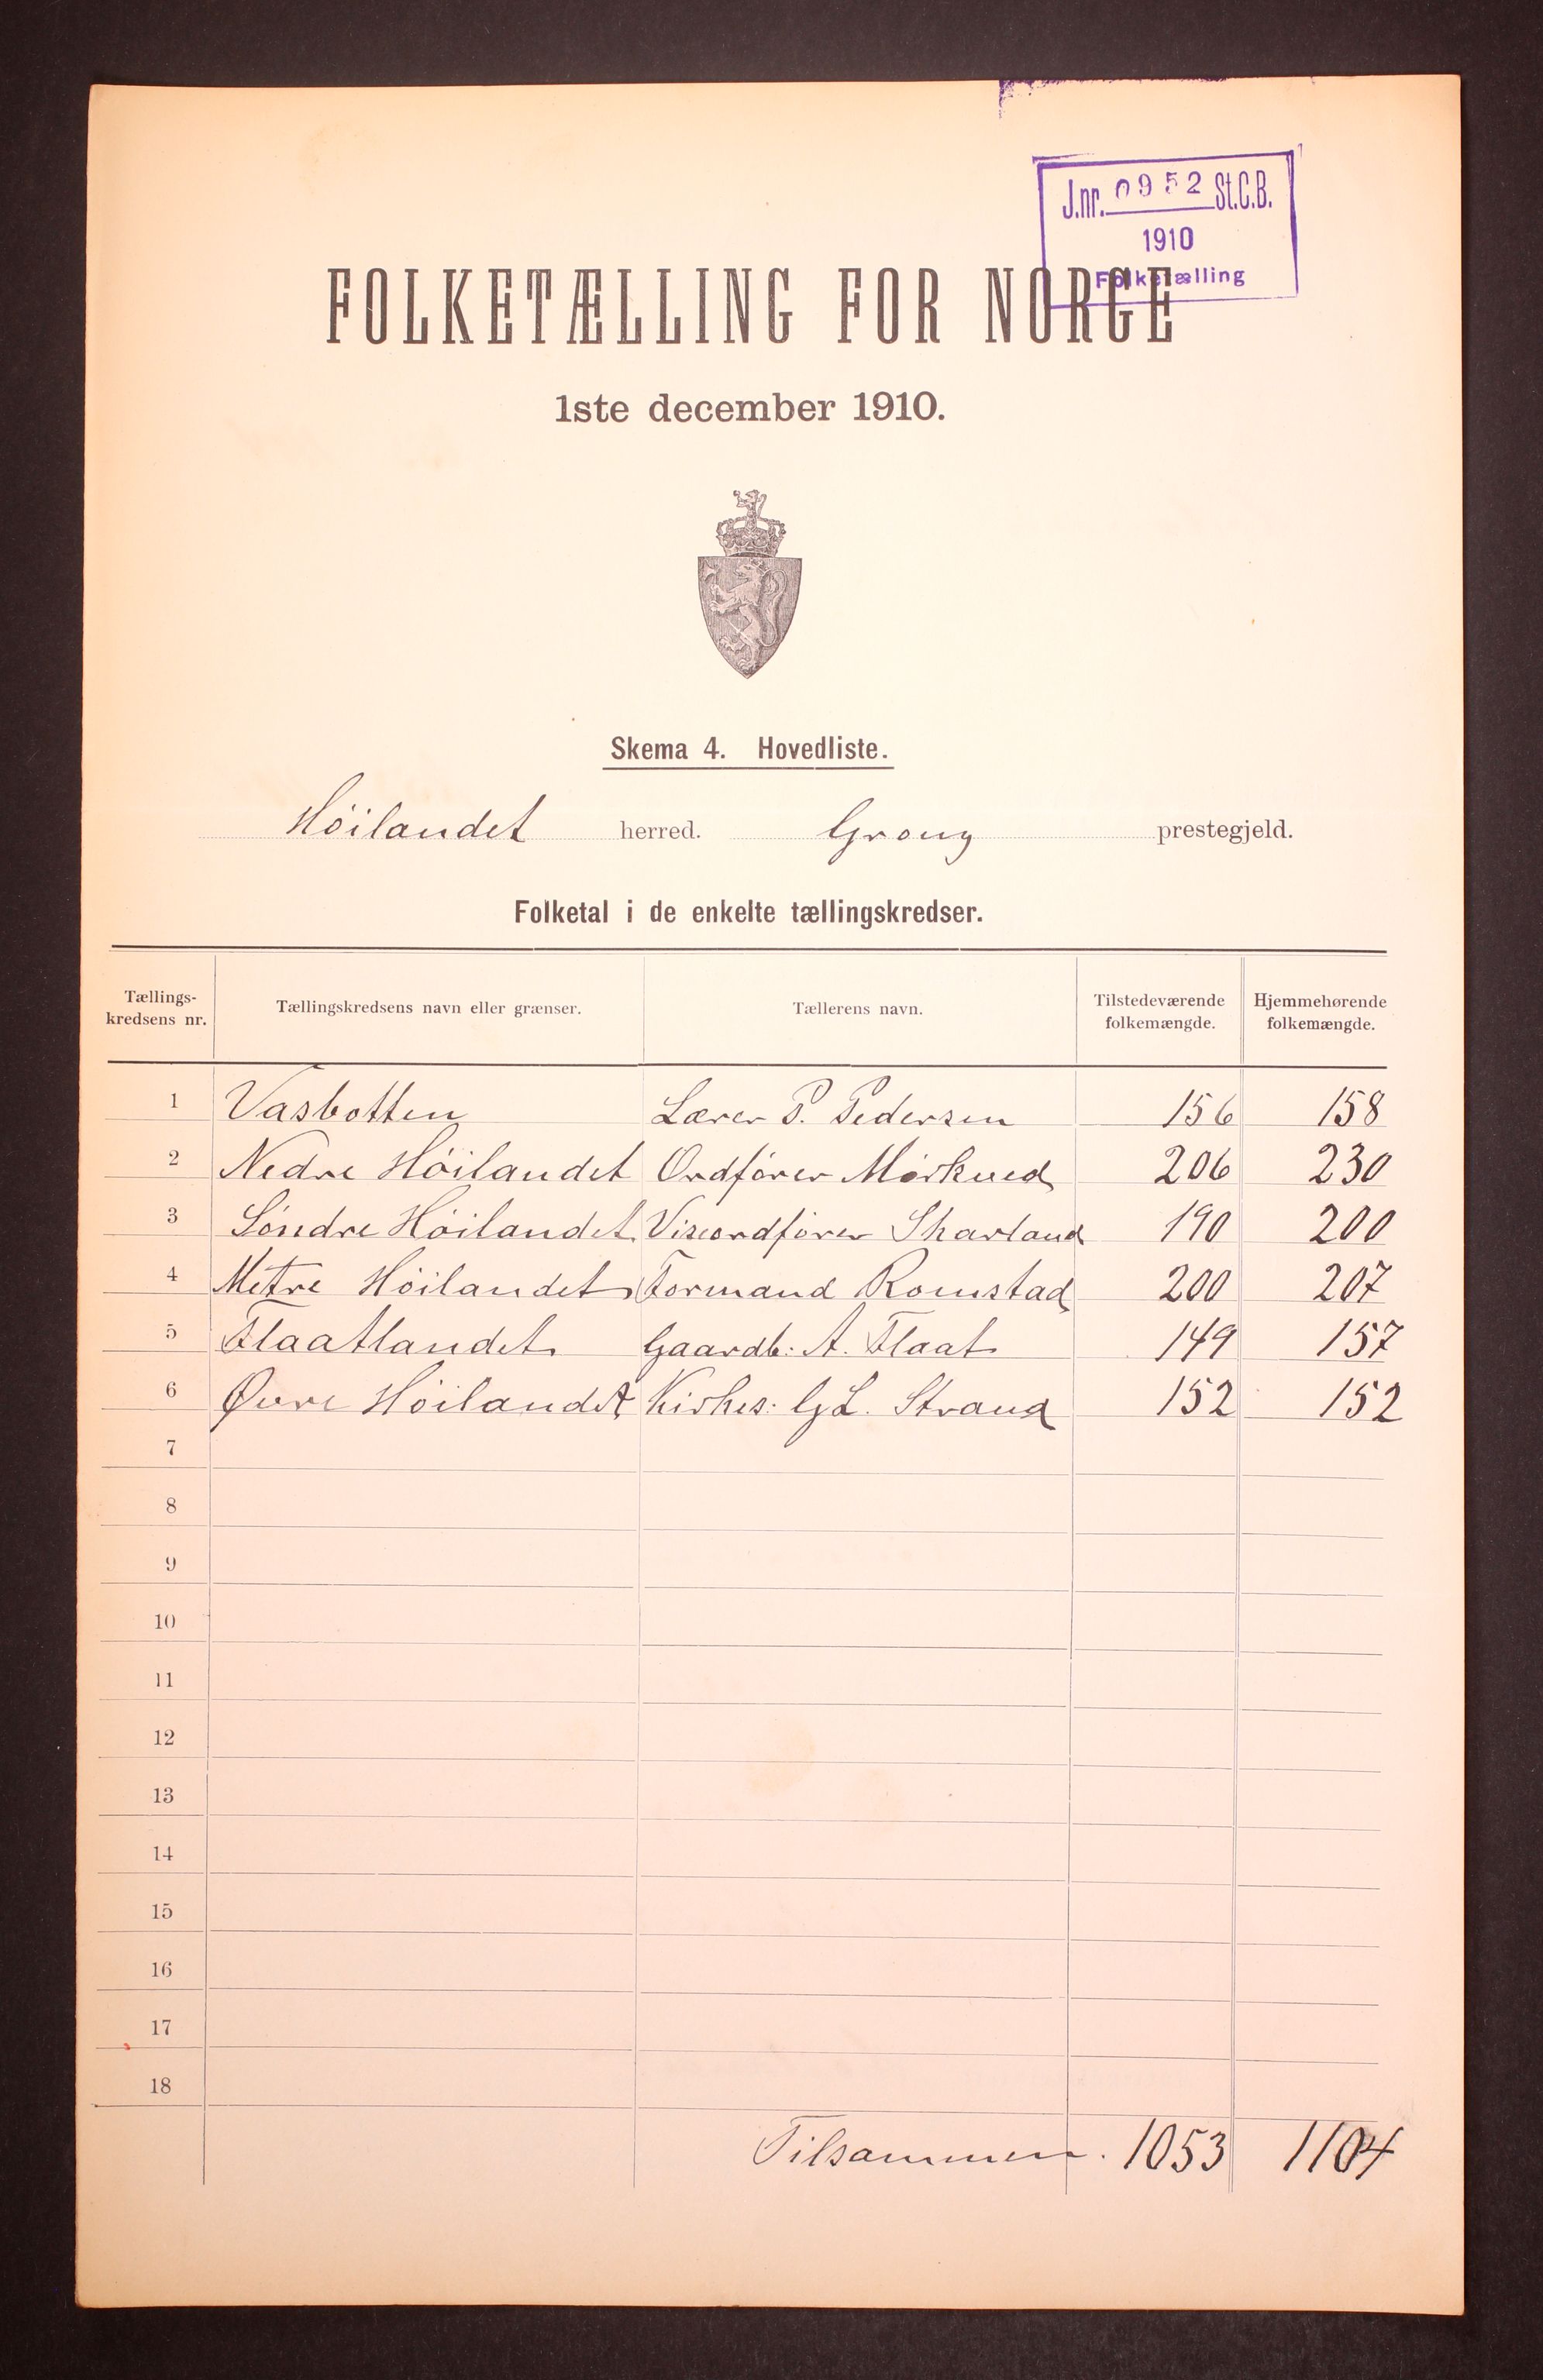 J.nr. 0952 St.C.B.
1910
Folketælling
FOLKETÆLLING FOR NORGE
1ste december 1910.
Skema 4. Hovedliste.
Höilandet herred. Grong prestegjeld.
Folketal i de enkelte tællingskredser.
Tællings-kredsens nr. Tællingskredsens navn eller grænser. Tællerens navn. Tilstedeværende folkemængde. Hjemmehørende folkemængde.
1 Vasbotten Lærer P. Pedersen 156 158
2 Nedre Höilandet Ordförer Mörkved 206 230
3 Söndre Höilandet Viseordförer Skarland 190 200
4 Mitre Höilandet Formand Romstad 200 207
5 Flaatlandet Gaardb: A. Flaat 149 157
6 Øvre Höilandet Kirkes: G L. Strand 152 152
7
8
9
10
11
12
13
14
15
16
17
18
Tilsammen. 1053 1104